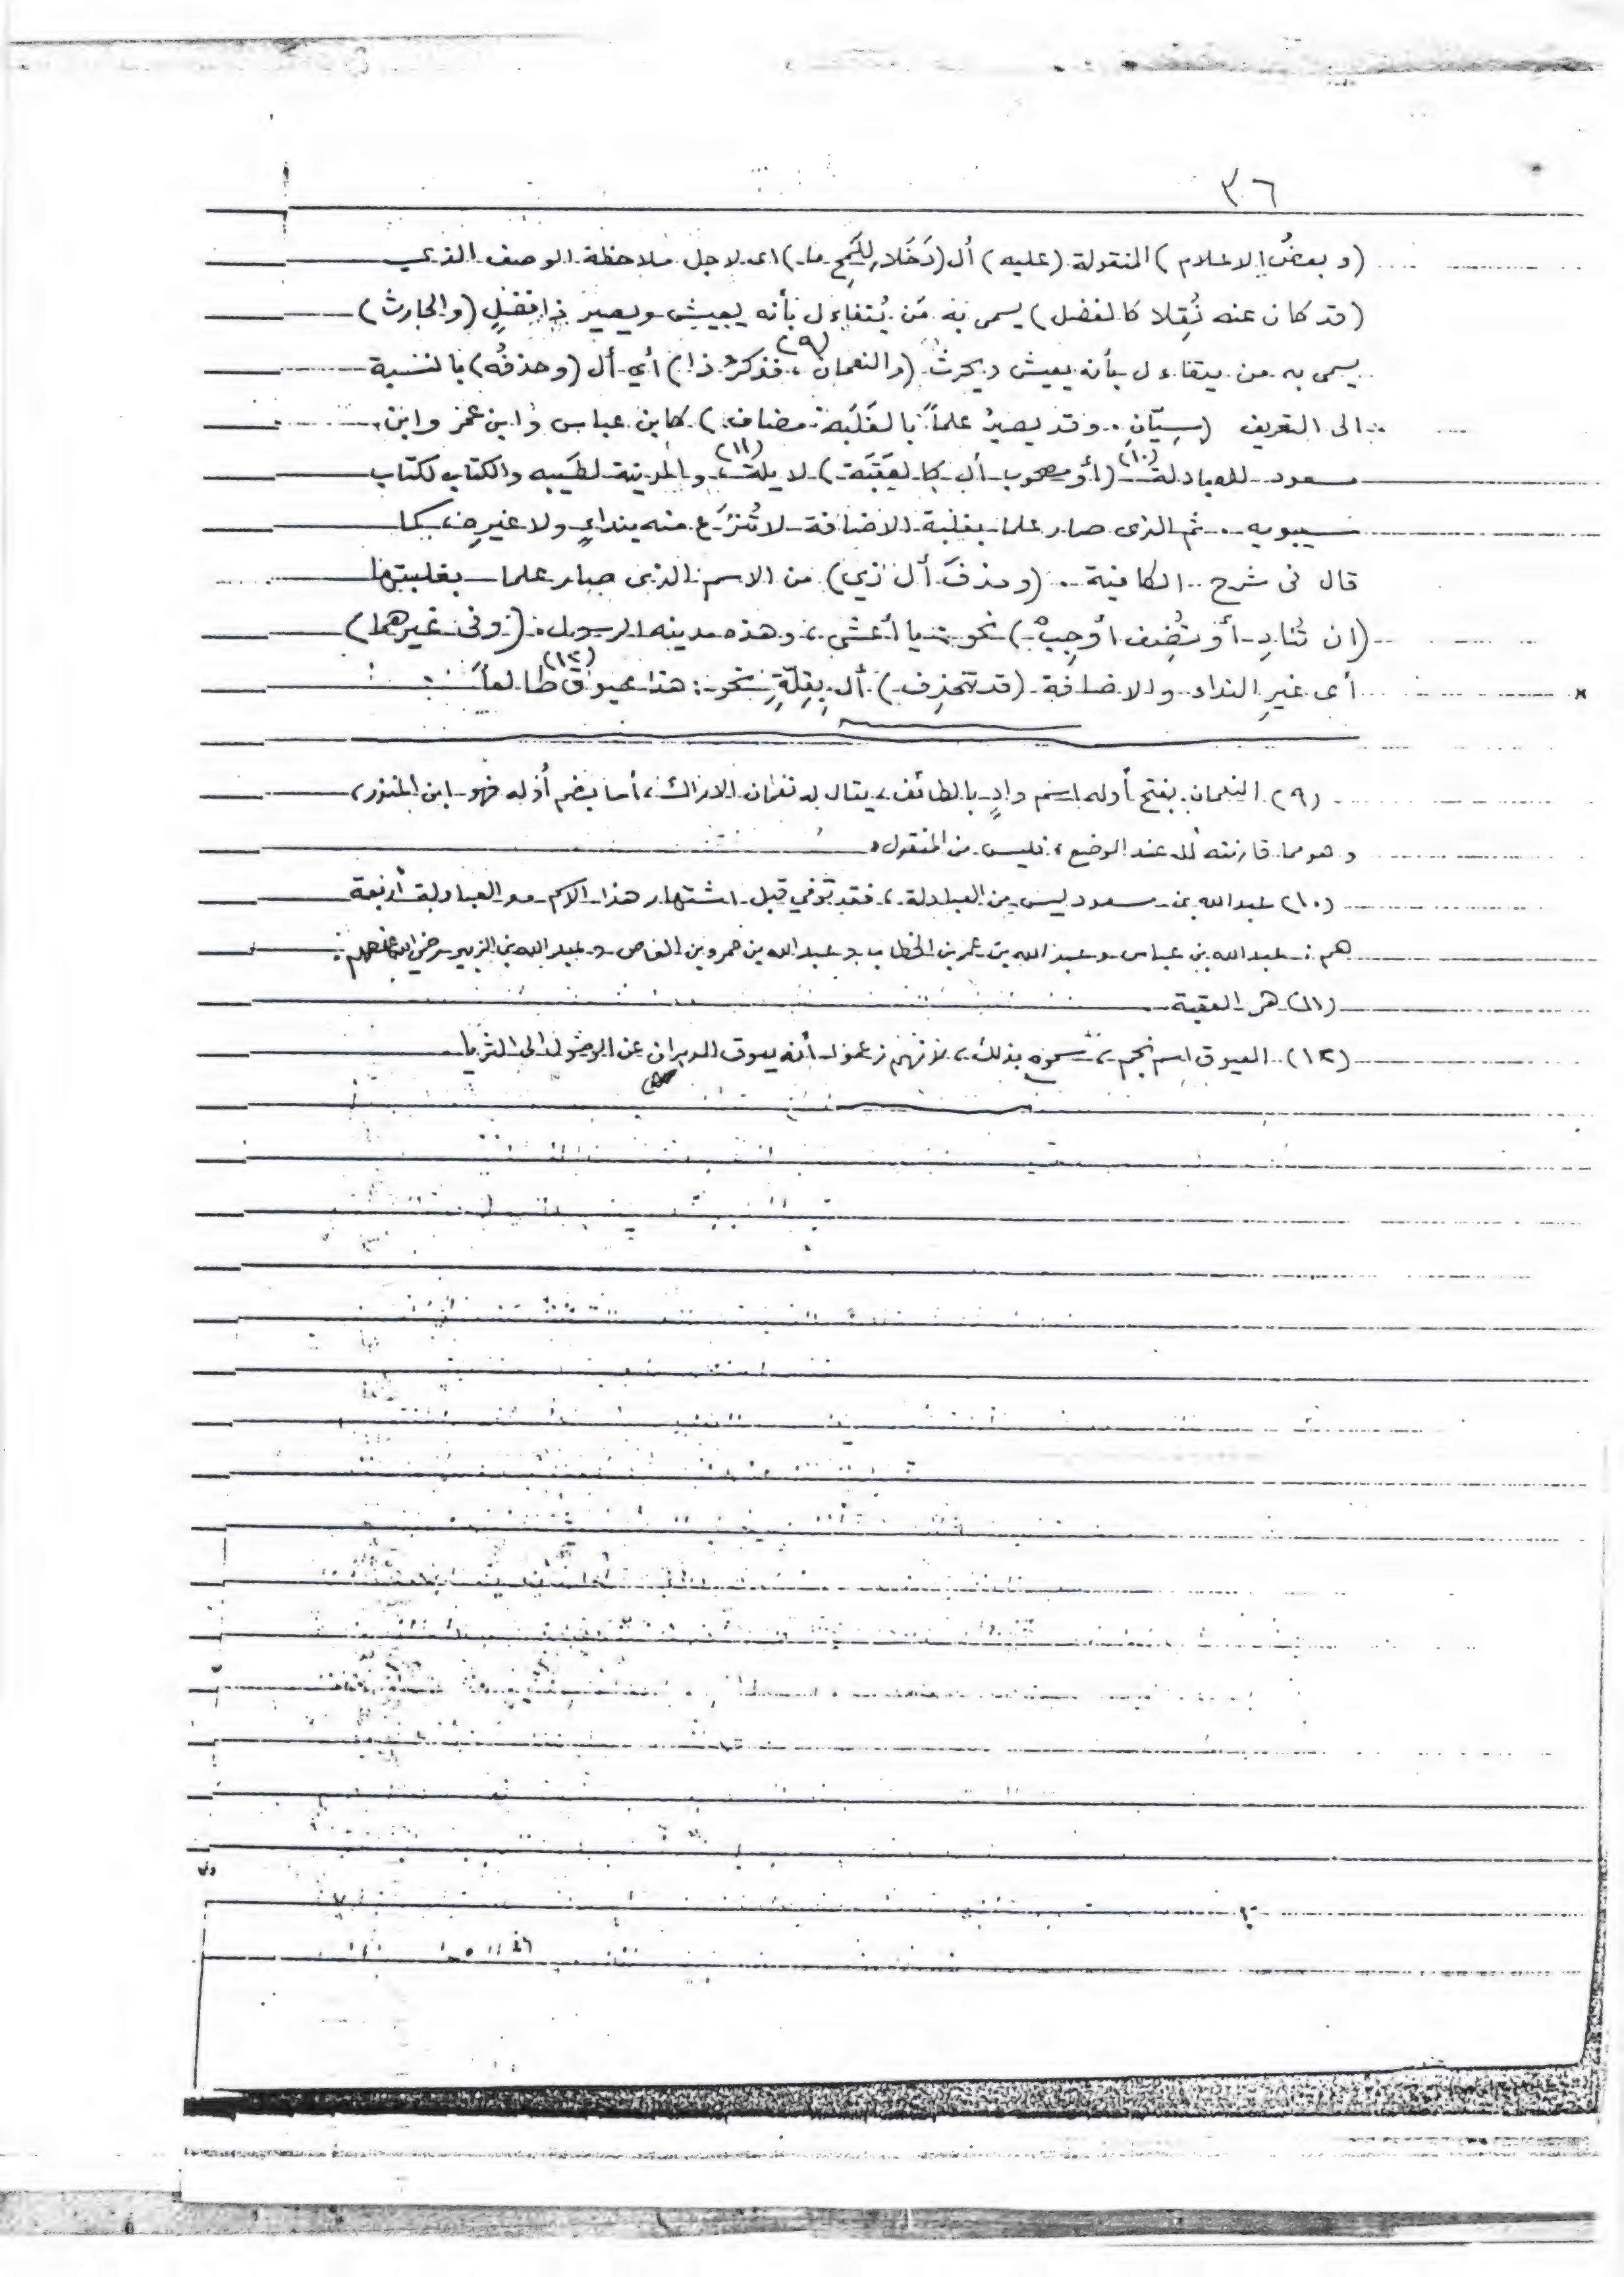 ٣٦
(وبعضُ الاعلام) المنقولة (عليه) أل (دَخَلا، لِلَمْحِ ما) اى لاجل ملاحظة الوصف الذي
(قد كان عنه نُقِلا كالفضل) يسمى به مَن يُتفاءل بأنه يعيش ويصير ذا فضلٍ (والحارث)
يسمى به من يتفاءل بأنه يعيش ويحرث (والنعمان (٩)، فذكرُ ذا) أي أل (وحذفُه) بالنسبة
الى التعريف (سِيّانِ. وقد يصيرُ علماً بالغَلَبَة مضاف) كابن عباس وابن عمر وابن
مسعود للعبادلة (١٠) (أو مصحوب أل كالعَقَبَة) لايلة (١١)، والمدينة لطَيبه والكتاب لكتاب
سيبويه. ثم الذى صار علما بغلبة الاضافة لا تُنزَع منه بنداءٍ ولا غيرِه، كما
قال فى شرح الكافية. (وحذفَ أل ذي) من الاسم الذى صار علما بغلبيتها
(ان تُنادِ أو تُضِف أوجِبْ) نحو: يا أعشى، وهذه مدينه الرسول. (وفى غيرهما)
أى غيرِ النداء والاضافة (قد تنحذف) أل بِقِلَّةٍ نحو: هذا عيوق (١٢) طالعاً.
(٩) النعمان بفتح أوله اسم وادٍ بالطائف، يقال له نعمان الاراك، أما بضم أوله فهو ابن المنذر،
وهو مما قارنته أل عند الوضع، فليس من المنقول.
(١٠) عبد الله بن مسعود ليس من العبادلة، فقد توفي قبل اشتهار هذا الاسم، والعبادلة أربعة
هم: عبد الله بن عباس وعبد الله بن عمر بن الخطاب وعبد الله بن عمرو بن العاص وعبد الله بن الزبير رضي الله عنهم.
(١١) هى العقبة
(١٢) العيوق اسم نجم، سموه بذلك، لانهم زعموا أنه يعوق الدبران عن الوصول الى الثريا